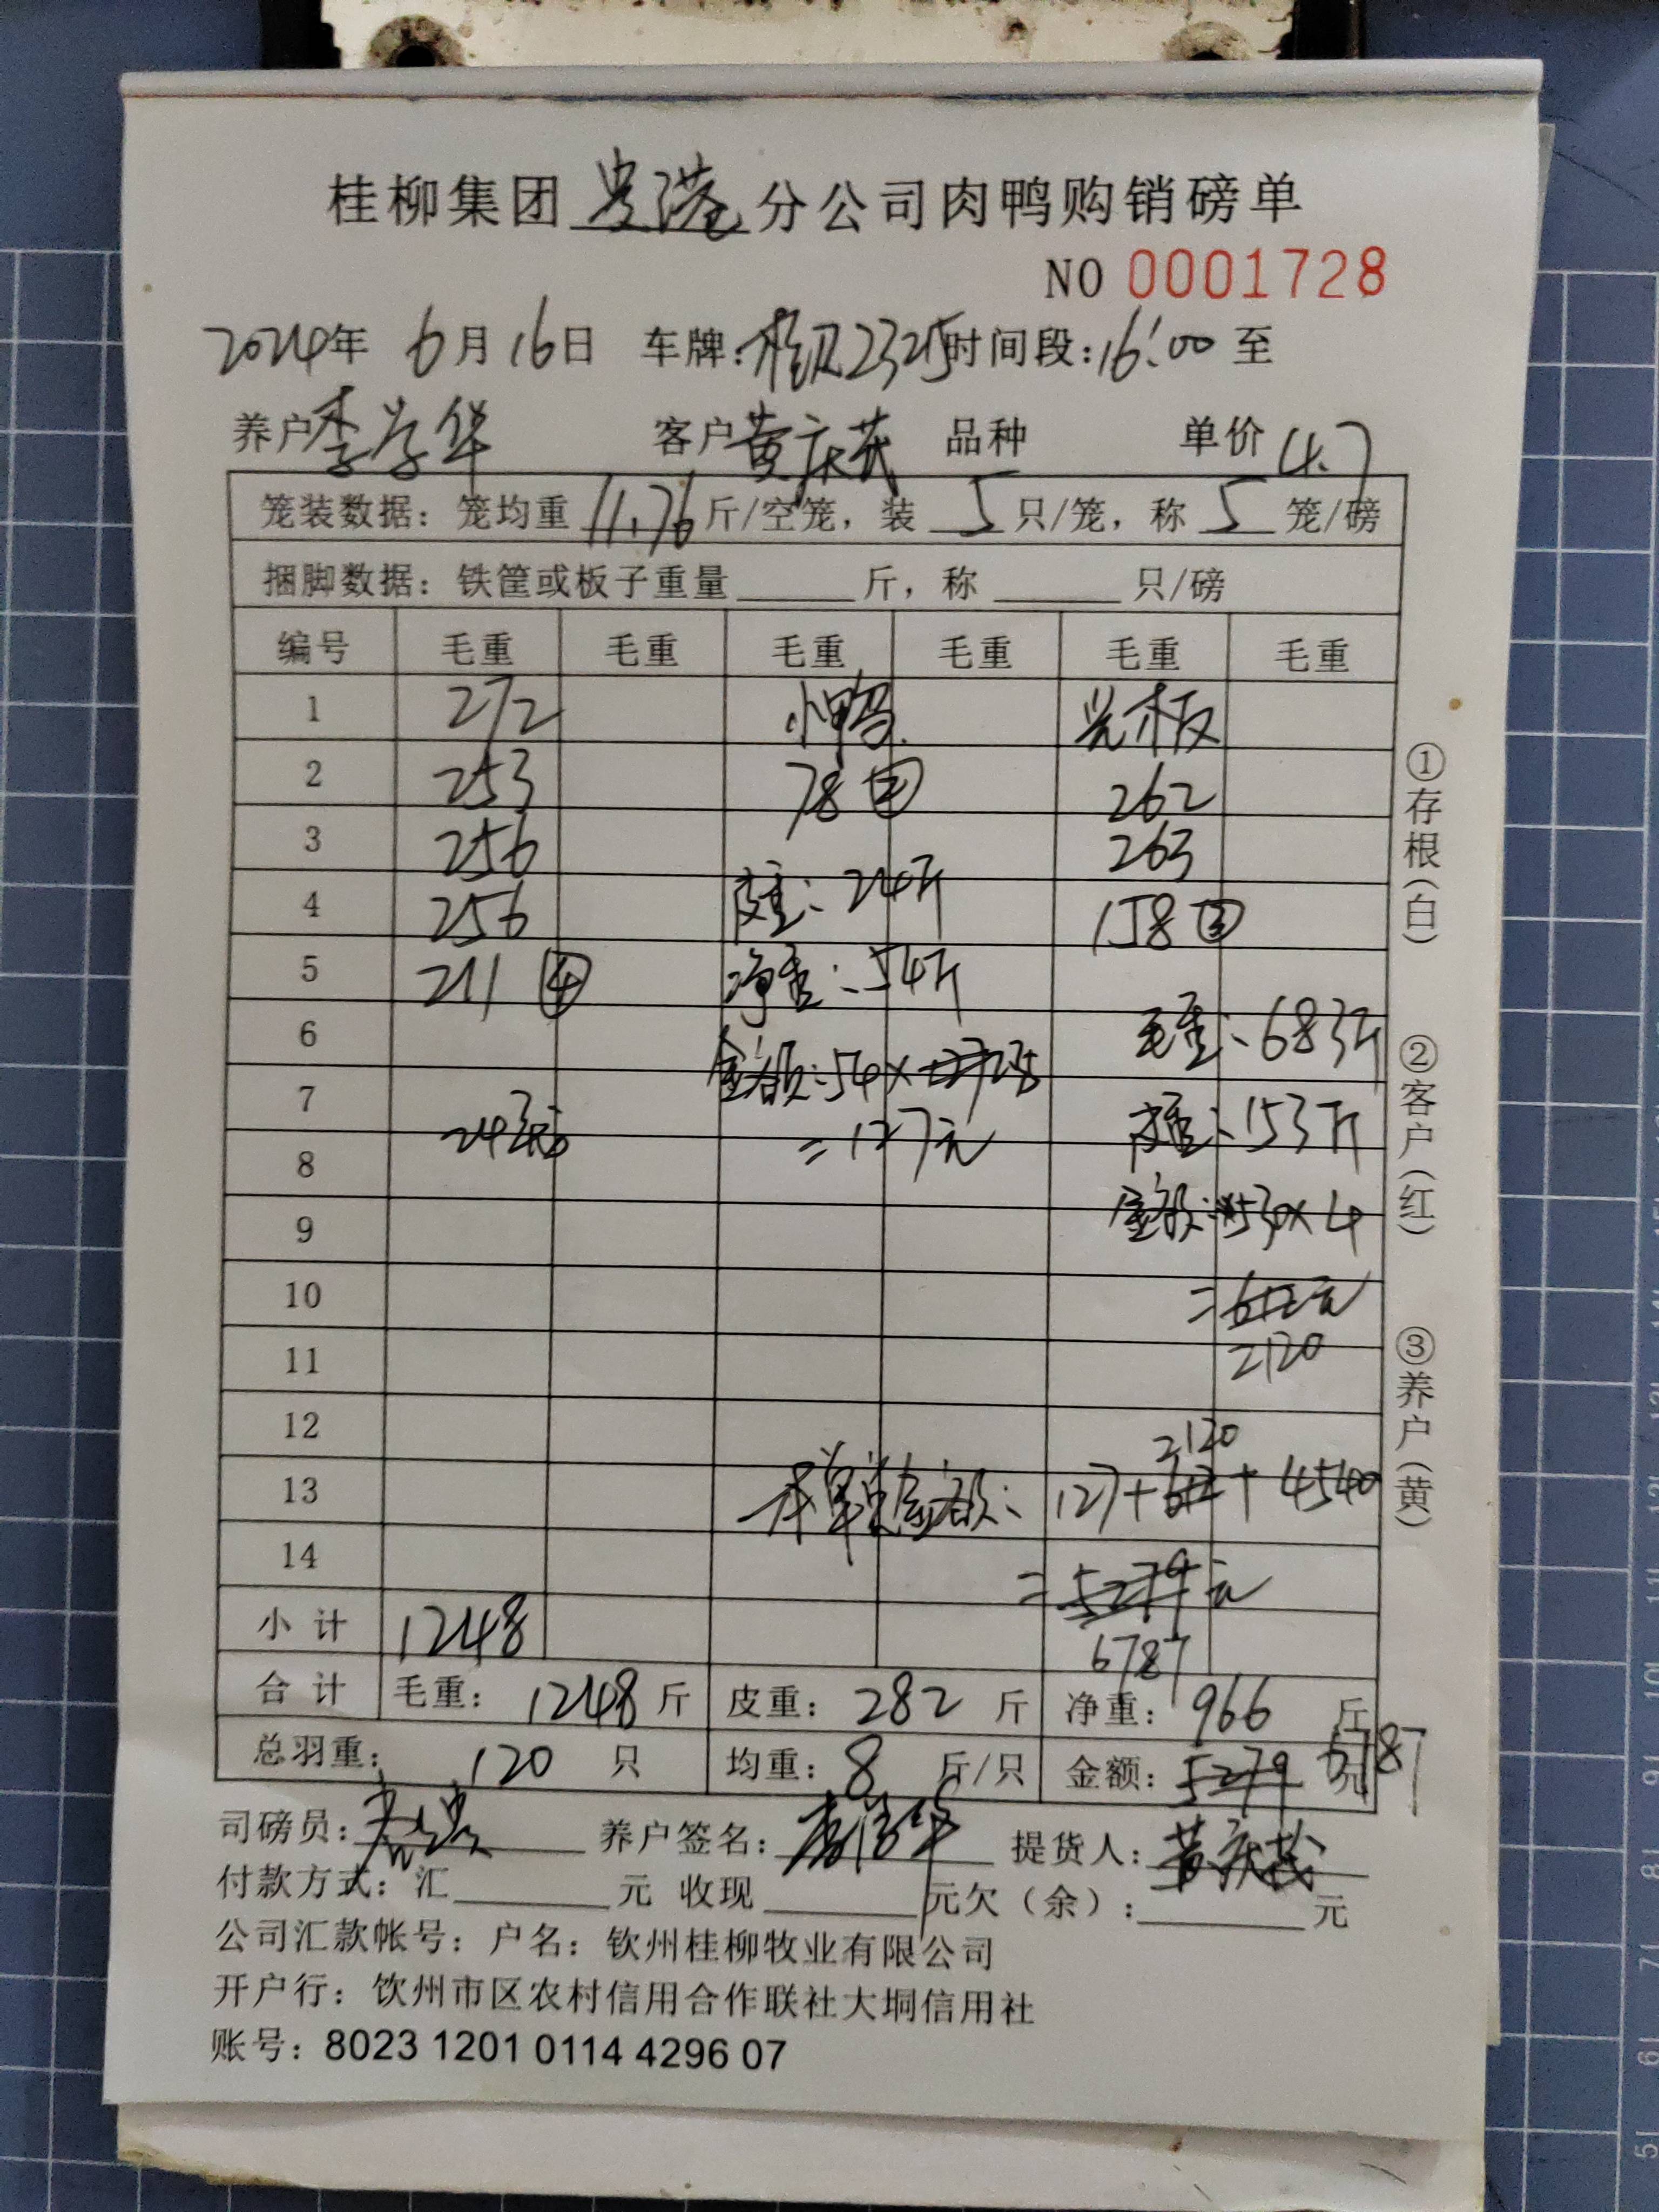 桂柳集团 贵港 分公司肉鸭购销磅单
NO 0001728
2024年 6月16日 车牌: 23215 时间段:16:00 至
养户 李学华 客户 黄庆茂 品种 单价 4.7
笼装数据: 笼均重 11.76 斤/空笼, 装 5 只/笼, 称 5 笼/磅
捆脚数据: 铁筐或板子重量 斤, 称 只/磅
编号 毛重 毛重 毛重 毛重 毛重 毛重
1 272 小鸭 光板
2 253 78② 262
3 256 263
4 256 皮重:24斤 158③
5 211④ 净重:54斤
6 毛重:683斤
金额:54×
7 24 皮重:153斤
=127元
8
9 金额:530×4
10 =612元
11 2120
12 2120
13 本单总金额: 127+612+4540
14 =5279元
小计 1248 6787
合计 毛重: 1248 斤 皮重: 282 斤 净重: 966 斤
总羽重: 120 只 均重: 8 斤/只 金额: 5279 元 6787
司磅员: 养户签名: 提货人: 黄庆茂
付款方式: 汇 元 收现 元欠(余): 元
公司汇款帐号: 户名: 钦州桂柳牧业有限公司
开户行: 饮州市区农村信用合作联社大垌信用社
账号: 8023 1201 0114 4296 07
①存根(白)
②客户(红)
③养户(黄)